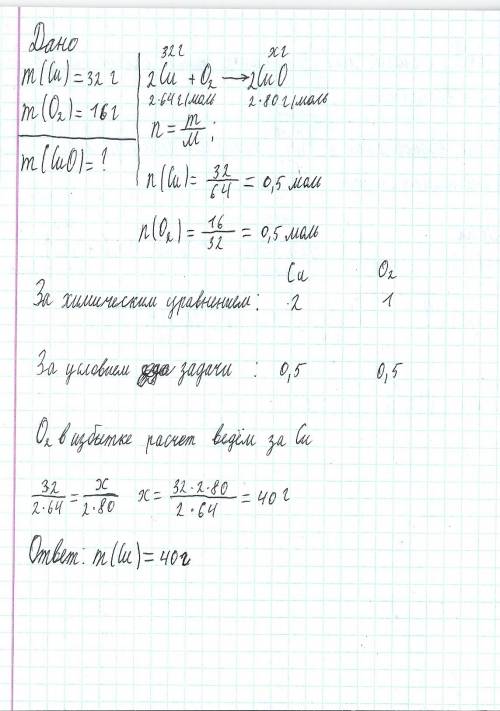 Дано
m(Cu)=32 г
m(O₂)=16г
m(CuO)=?
32г хг
2Cu + O₂ → 2CuO
2·64г/моль 2·80г/моль
n = m/M ;
n(Cu)= 32/64 = 0,5 моль
n(O₂)= 16/32 = 0,5 моль
Cu O₂
За химическим уравнением: 2 1
За условием задачи : 0,5 0,5
O₂ в избытке расчет ведём за Cu
32/2·64 = x/2·80 x= 32·2·80/2·64 = 40г
Ответ: m(Cu)=40г